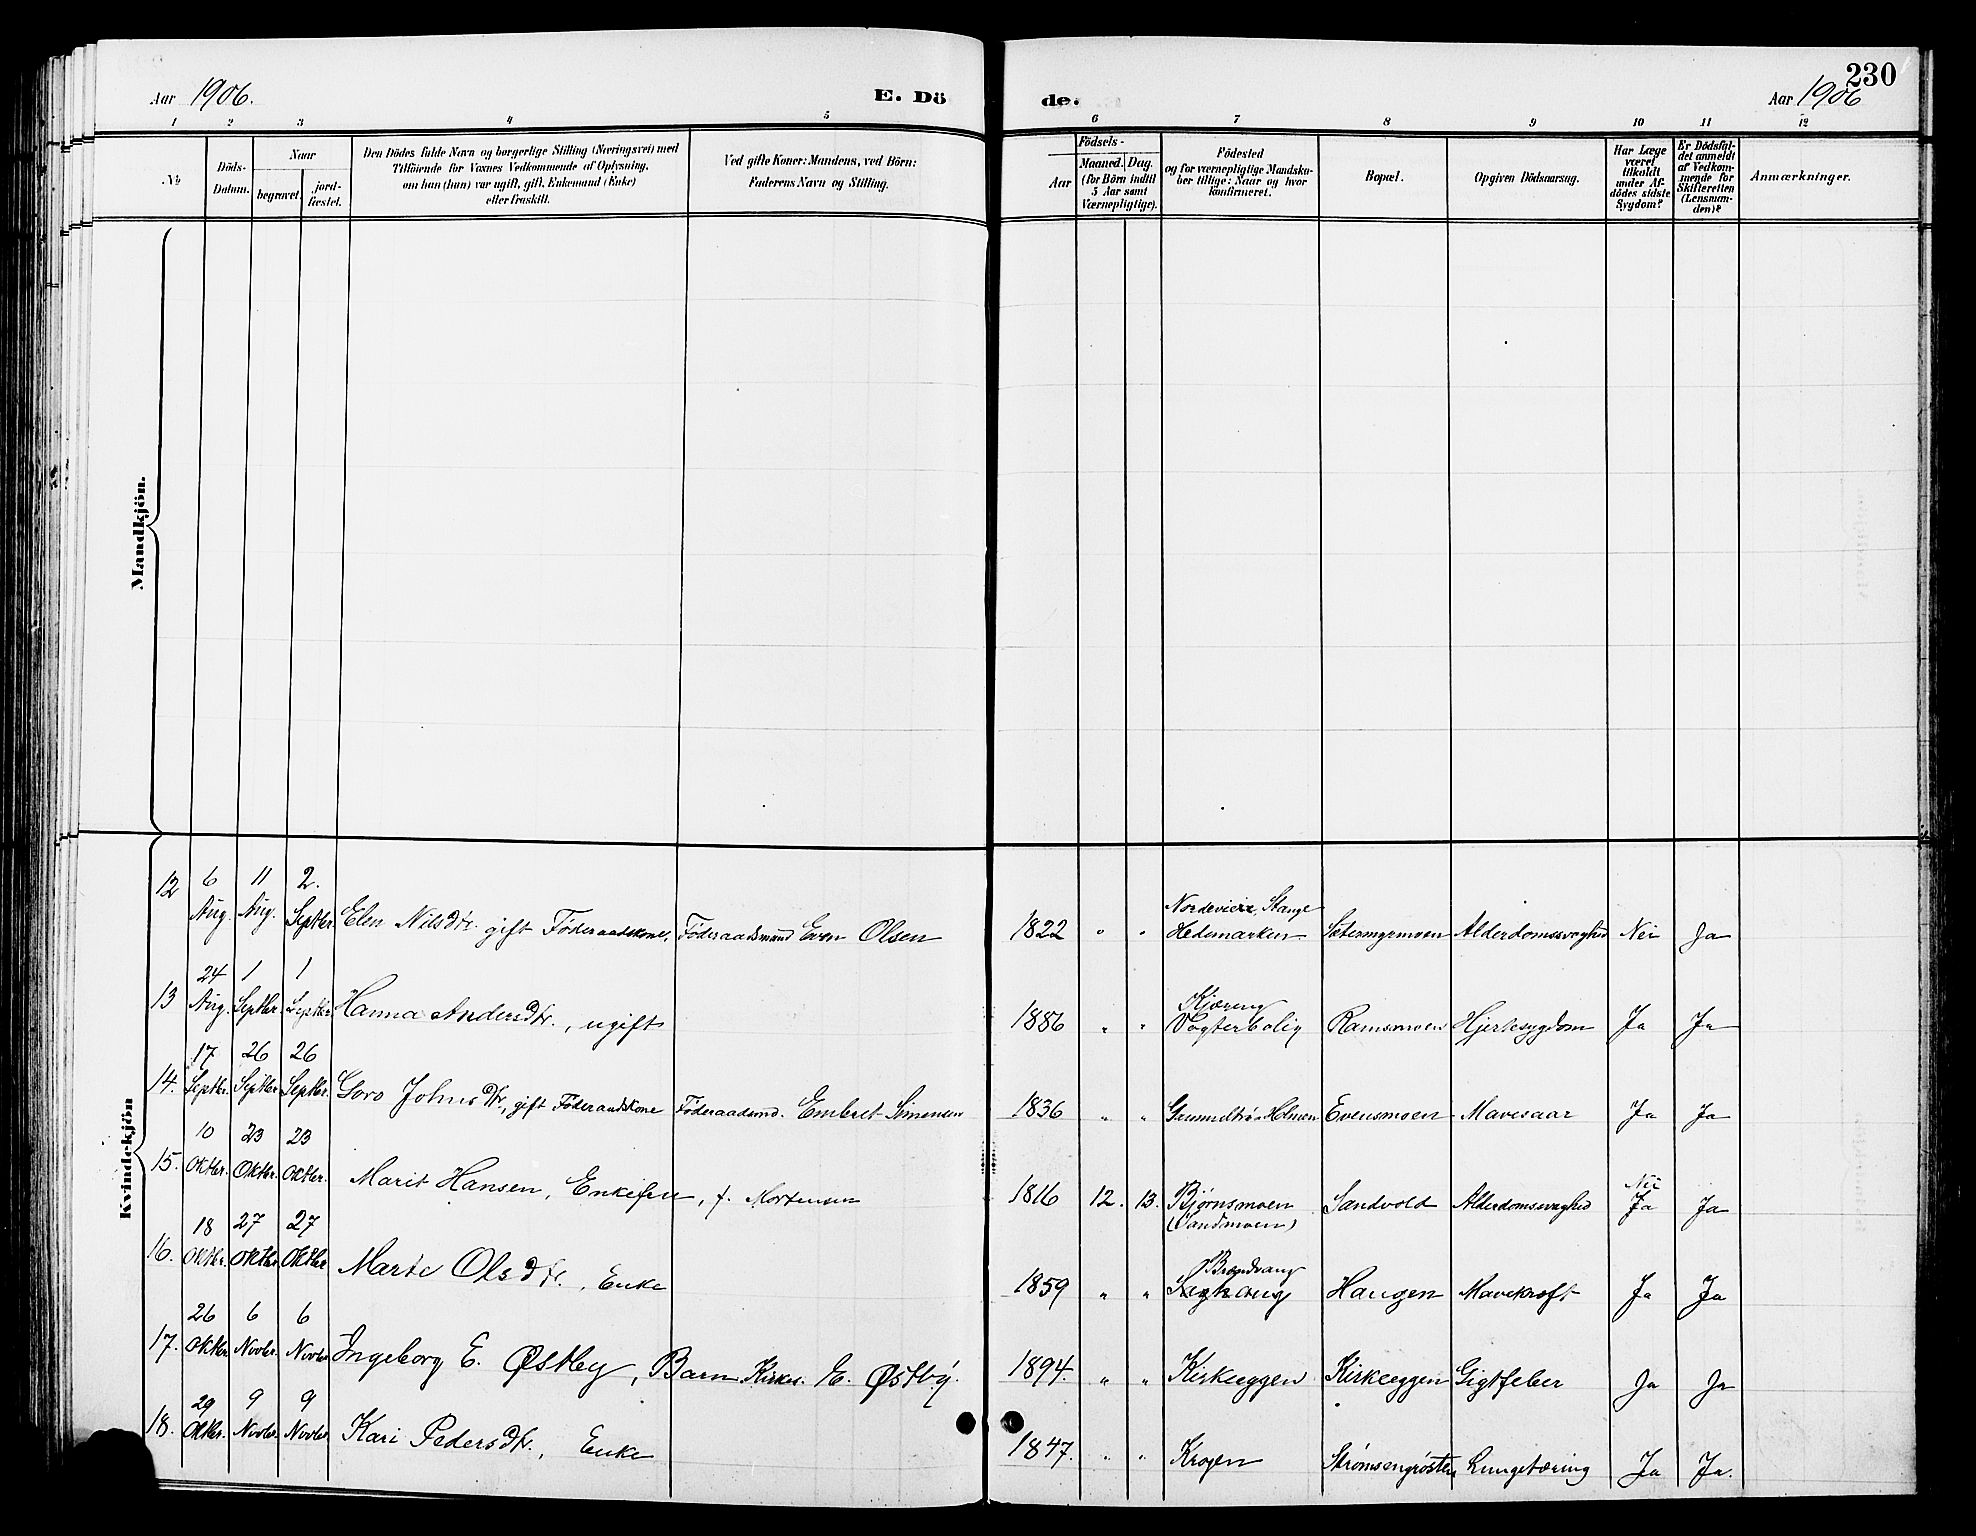 230
Aar 1906.
E. Dö
de.
Aar 1906
1 2 3 4 5
6 7 8 9 10 11 12
No
Döds-
Datum.
Naar
begravet.
jord-
fæstet.
Den Dödes fulde Navn og borgerlige Stilling (Næringsvei) med
Tilföiende for Voxnes Vedkommende af Oplysning,
om han (hun) var ugift, gift, Enkemand (Enke)
eller fraskilt.
Ved gifte Koner: Mandens, ved Börn:
Faderens Navn og Stilling.
Födsels-
Aar
Maaned. Dag.
(for Börn indtil
5 Aar samt
Værnepligtige).
Födested
og for værnepligtige Mandska-
ber tillige: Naar og hvor
konfirmeret.
Bopæl.
Opgiven Dödsaarsag.
Har Læge
været
tilkaldt
under Af-
dödes sidste
Sygdom?
Er Dödsfal-
det anmeldt
af Vedkom-
mende for
Skifteretten
(Lensman-
den)?
Anmærkninger.
Mandkjön.
Kvindekjön
12 6 Aug. 11 Aug. 2. Septbr. Elen Nilsdtr. gift Föderaadskone, Föderaadsmand Even Olsen 1822 " " Stange Hedemarken. Sætermyrmoen Alderdomssvaghed Nei Ja
13 24 Aug. 1 Septbr. 1 Septbr. Hanna Andersdtr., ugift 1886 " " Kjæreng Vogterbolig Ramsmoen Hjertesygdom Ja Ja
14. 17 Septbr. 26 Septbr. 26 Septbr. Goro Johnsdtr., gift Föderaadskone Föderaadsmd. Embret Simensen 1836 " " Evensmoen Mavesaar Ja Ja
15. 10 Oktbr. 23 Oktbr. 23 Oktbr. Marit Hansen, Enkefru, f. Mortensen 1816 12. 13. Bjørnsmoen (Sandmoen) Sandvold Alderdomssvaghed Nei Ja Ja
16. 18 Oktbr. 27 Oktbr. 27 Oktbr. Marte Olsdtr. , Enke 1859 " " Brandvang Haugen Mavekræft Ja Ja
17. 26 Oktbr. 6 Novbr. 6 Novbr. Ingeborg E. Østby, Barn Kirkes. E. Østby. 1894. " " Kirkeeggen Kirkeeggen Gigtfeber Ja Ja
18. 29 Oktbr. 9 Novbr. 9 Novbr. Kari Pedersdtr., Enke 1847. " " Krogen Lungetæring Ja Ja.